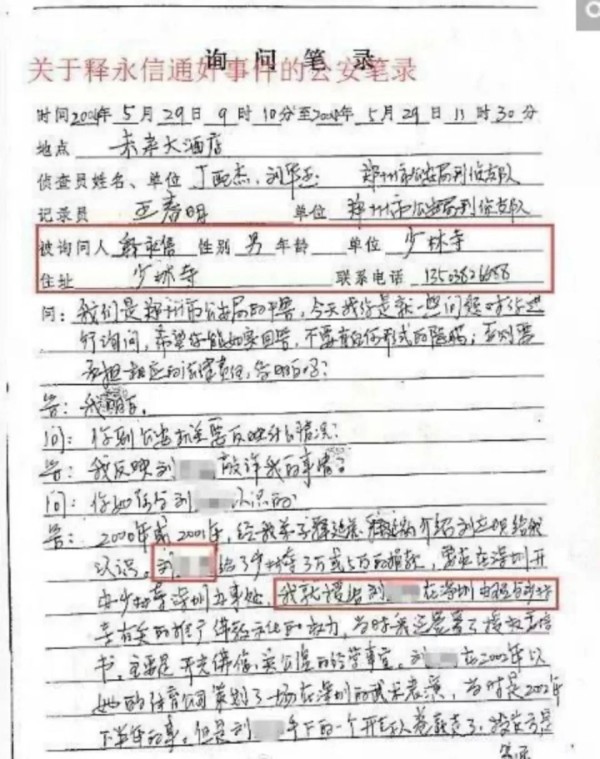 询问笔录
关于释永信通奸事件的公安笔录
时间2004年5月29日9时10分至2004年5月29日11时30分
地点 未来大酒店
侦查员姓名、单位 丁 杰、刘 郑州市公安局刑侦支队
记录员 王春明 单位 郑州市公安局刑侦支队
被询问人 释永信 性别 男 年龄 单位 少林寺
住址 少林寺 联系电话
问:我们是郑州市公安局的干警,今天找你是就一些问题对你进
行询问,希望你能如实回答,不要有任何形式的隐瞒;否则要
承担相应的法律责任,你明白吗?
答:我明白。
问:你到公安机关要反映什么情况?
答:我反映刘 敲诈我的事情。
问:你如何与刘 认识的
答:2000年或2001年,经我弟子 介绍刘 给我
认识,刘 给了少林寺3万或5万的捐款,要求在深圳开
办少林寺深圳办事处,我就授给刘 在深圳 与少林
寺有关的推广传统文化的权力,当时我还签署了授权委托
书,主要是开光佛像,卖公墓的经营事宜,刘 在2002年以
她的体育公司策划了一场在深圳的武术表演,当时是2002年
下半年的事,但是刘 手下的一个 卷款走了,